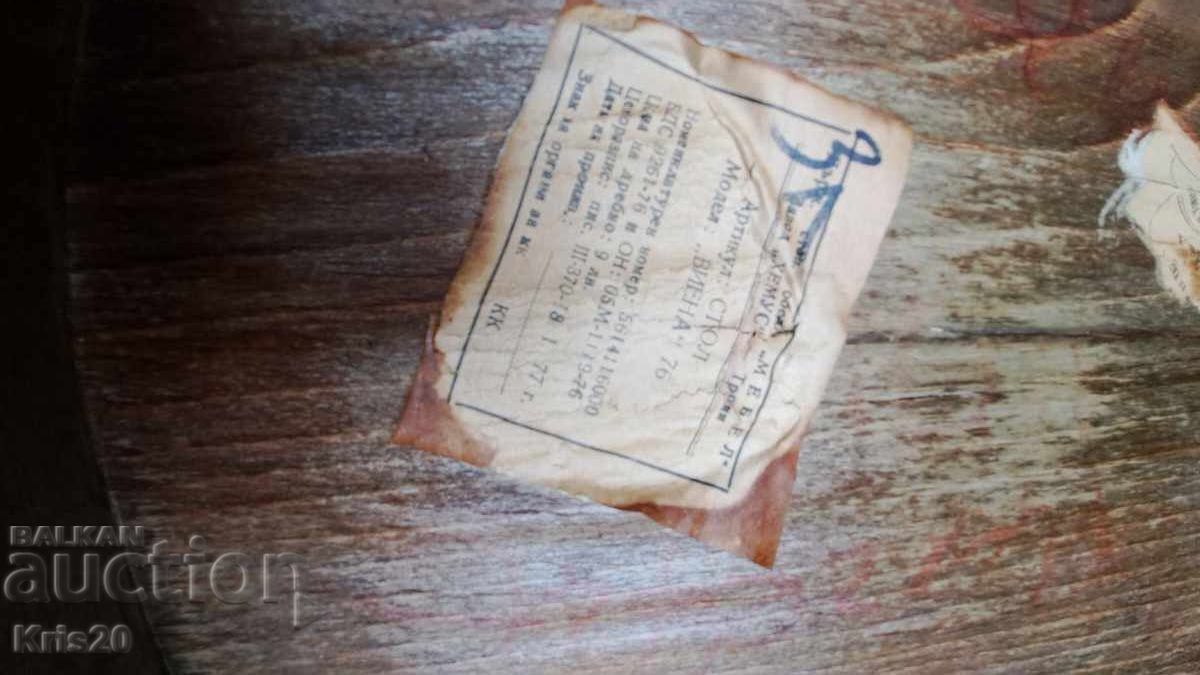 „МЕБЕЛ"
„ХЕМУС" Троян
Артикул: СТОЛ
Модел: „ВИЕНА" 76
Номенклатурен номер: 5614116000
БДС 9261-76 и ОН: 05М-1119-76
Цена на дребно: 9 лв.
Ценоразпис: пис. III-370-78
Дата на произв.: 1 77 г.
Знак за органа за кк КК
BALKAN
auction
Kris20